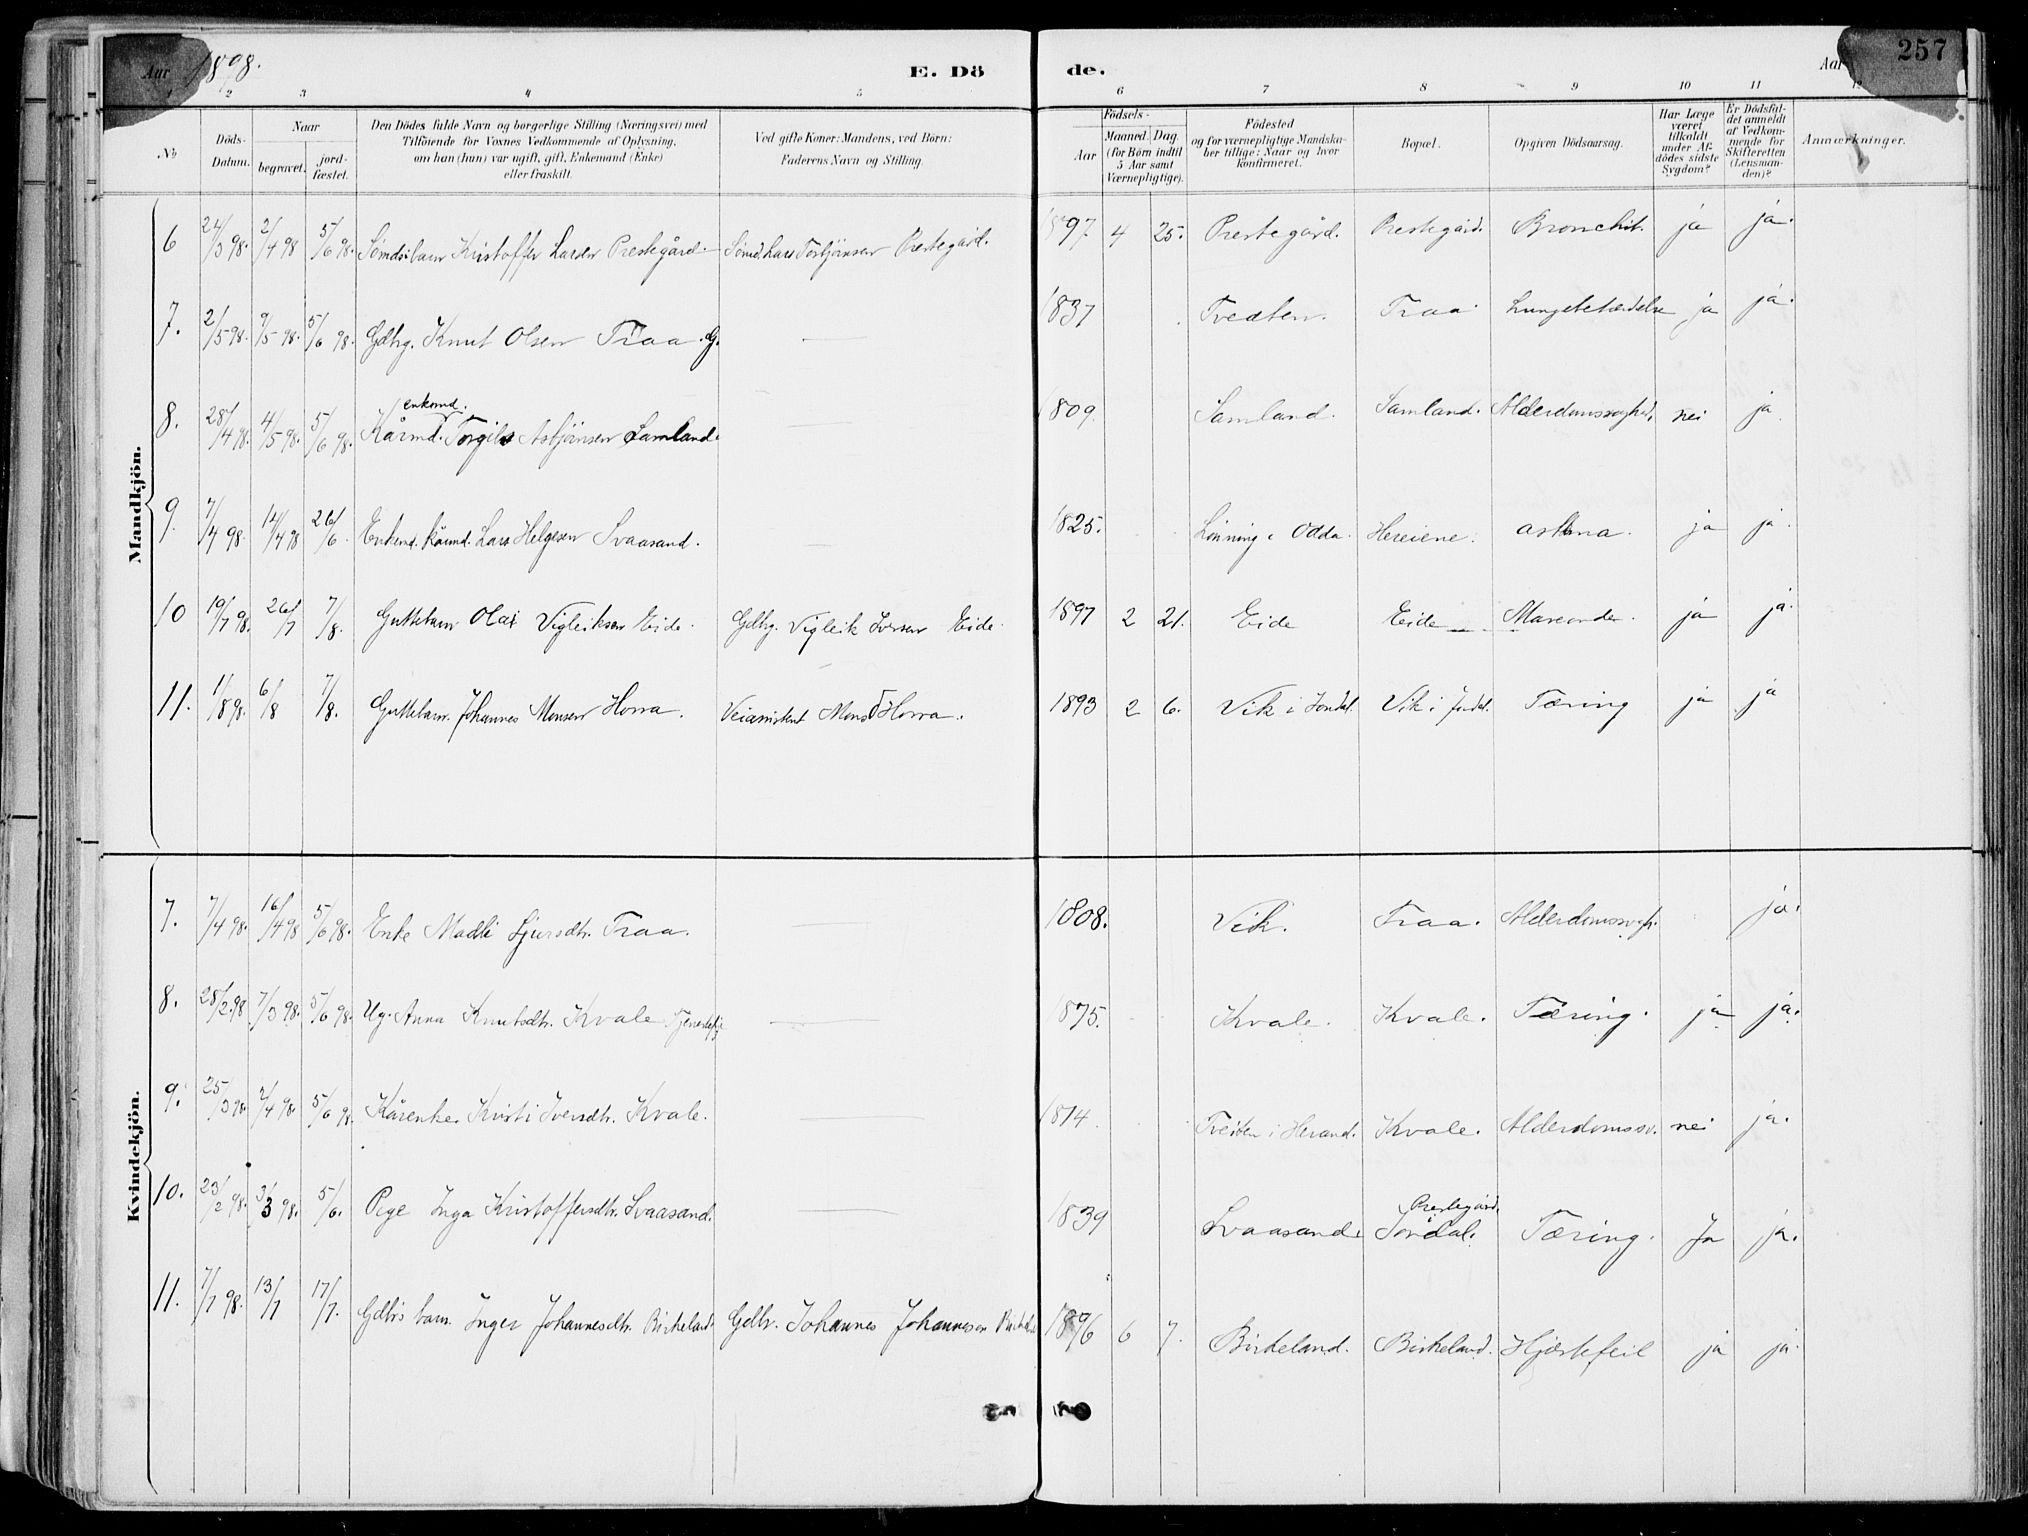 Aar 1898. E. Dö de. Aar 257
1 2 3 4 5 6 7 8 9 10 11 12
No
Döds-Datum.
Naar begravet. jord-fæstet.
Den Dödes fulde Navn og borgerlige Stilling (Næringsvei) med
Tilföiende for Voxnes Vedkommende af Oplysning,
om han (hun) var ugift, gift, Enkemand (Enke)
eller fraskilt.
Ved gifte Koner: Mandens, ved Börn:
Faderens Navn og Stilling.
Födsels-
Aar Maaned. Dag.
(for Börn indtil 5 Aar samt Værnepligtige).
Födested
og for værnepligtige Mandska-
ber tillige: Naar og hvor
konfirmeret.
Bopæl.
Opgiven Dödsaarsag.
Har Læge været tilkaldt under Af-dödes sidste Sygdom?
Er Dödsfal-det anmeldt af Vedkom-mende for Skifteretten (Lensman-den)?
Anmærkninger.
Mandkjön.
6 24/3 98. 2/4 98 5/6 98. Kristoffer Larsen Prestegård Lars Torbjönsen Prestegård. 1897 4 25. Prestegård. Prestegård. Bronchit. ja ja.
7. 2/5 98. 9/5 98. 5/6 98. Gdbrg. Knut Olsen Traa. G. — 1837 Tvedten. Traa Lungebetændelse ja ja.
8. 28/4 98. 4/5 98. 5/6 98. Kårmd. enkemd. Torgils Asbjönsen Samland. 1809. Samland. Samland. Alderdomssvaghed, nei ja.
9. 7/4 98. 14/4 98 26/6. Enkemd. kårmd. Lars Helgesen Svaasand. 1825. Lönning i Odda. Hereiene. asthma. ja ja
10 19/7 98. 26/7 7/8. Guttebarn Olai Vigleiksen Eide. Gdbrg. Vigleik Iversen Eide. 1897 2 21. Eide Eide ja ja.
11. 1/8 98. 6/8 7/8. Guttebarn. Johannes Monsen Horra. Veiassistent Mons Horra. 1893 2 6. Vik i Jondal. Vik i Jondal. Tæring ja ja
Kvindekjön.
7. 7/4 98. 16/4 98 5/6 98. Enke Madli Sjursdtr. Traa. — 1808. Vik. Traa. Alderdomssvagh. ja.
8. 28/2 98 7/3 98. 5/6 98. Ug. Anna Knutsdtr. Kvale — 1875. Kvale. Kvale. Tæring. ja ja.
9. 25/3 98. 2/4 98. 5/6 98. Kårenke Kristi Iversdtr. Kvale. — 1814. Tveiten i Herand. Kvale. Alderdomssv. nei ja.
10. 23/2 98. 3/3 98. 5/6. Pige Inga Kristoffersdtr. Svaasand. — 1839 Svaasand. Prestegård. Jondal. Tæring. Ja ja.
11. 7/7 98. 13/7 17/7. Gdbrs barn. Inger Johannesdtr. Birkeland. Gdbr. Johannes Johannesen Birkeland 1896 6 7. Birkeland. Birkeland. Hjertefeil ja ja.